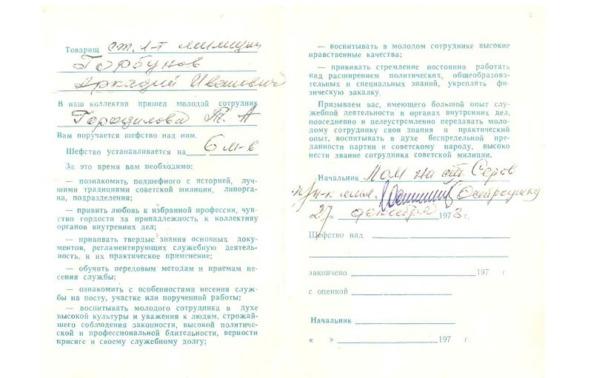 Товарищ ст. л-т милиции
Горбунов
Аркадий Иванович
В наш коллектив пришел молодой сотрудник
Городилова Т. А
Вам поручается шефство над ним.
Шефство устанавливается на 6 м-в
За это время вам необходимо:
— познакомить подшефного с историей, луч-
шими традициями советской милиции, ливорга-
на, подразделения;
— привить любовь к избранной профессии, чув-
ство гордости за принадлежность к коллективу
органов внутренних дел;
— прививать твердые знания основных доку-
ментов, регламентирующих служебную деятель-
ность, и их практическое применение;
— обучить передовым методам и приемам не-
сения службы;
— ознакомить с особенностями несения служ-
бы на посту, участке или порученной работы;
— воспитывать молодого сотрудника в духе
высокой культуры и уважения к людям, строжай-
шего соблюдения законности, высокой политичес-
кой и профессиональной бдительности, верности
присяге и своему служебному долгу;
— воспитывать в молодом сотруднике высокие
нравственные качества;
— прививать стремление постоянно работать
над расширением политических, общеобразова-
тельных и специальных знаний, укреплять фи-
зическую закалку.
Призываем вас, имеющего большой опыт слу-
жебной деятельности в органах внутренних дел,
повседневно и целеустремленно передавать моло-
дому сотруднику свои знания и практический
опыт, воспитывать в духе беспредельной пре-
данности партии и советскому народу, высоко
нести звание сотрудника советской милиции.
Начальник ст. Серов
27 декабря 197 г.
Шефство над
закончено 197 г
с оценкой
Начальник
« » 197 г.